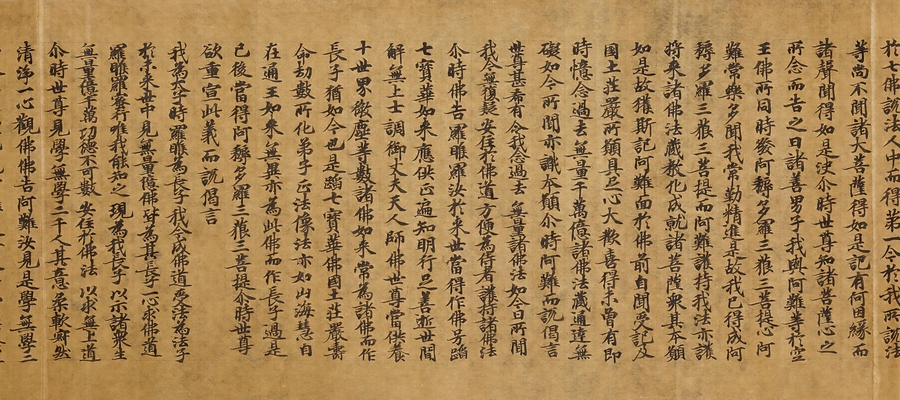 於七佛說法人中而得第一今於我所說法
等尚不聞諸大菩薩得如是記有何因緣而
諸聲聞得如是决尒時世尊知諸菩薩心之
所念而告之曰諸善男子我與阿難等於空
王佛所同時發阿耨多羅三藐三菩提心阿
難常樂多聞我常勤精進是故我已得成阿
耨多羅三藐三菩提而阿難護持我法亦護
將來諸佛法藏教化成就諸菩薩衆其本願
如是故獲斯記阿難面於佛前自聞受記及
國土莊嚴所願具足心大歡喜得未曾有即
時憶念過去無量千萬億諸佛法藏通達無
礙如今所聞亦識本願尒時阿難而說偈言
世尊甚希有 令我念過去 無量諸佛法 如今日所聞
我今無復疑 安住於佛道 方便為侍者 護持諸佛法
尒時佛告羅睺羅汝於來世當得作佛号蹈
七寶華如來應供正遍知明行足善逝世間
解無上士調御丈夫天人師佛世尊當供養
十世界微塵等數諸佛如來常為諸佛而作
長子猶如今也是蹈七寶華佛國土莊嚴壽
命劫數所化弟子正法像法亦如山海慧自
在通王如來無異亦為此佛而作長子過是
已後當得阿耨多羅三藐三菩提尒時世尊
欲重宣此義而說偈言
我為太子時 羅睺為長子 我今成佛道 受法為法子
於未來世中 見無量億佛 皆為其長子 一心求佛道
羅睺羅密行 唯我能知之 現為我長子 以示諸衆生
無量億千萬 功德不可數 安住於佛法 以求無上道
尒時世尊見學無學二千人其意柔軟寂然
清淨一心觀佛佛告阿難汝見是學無學二